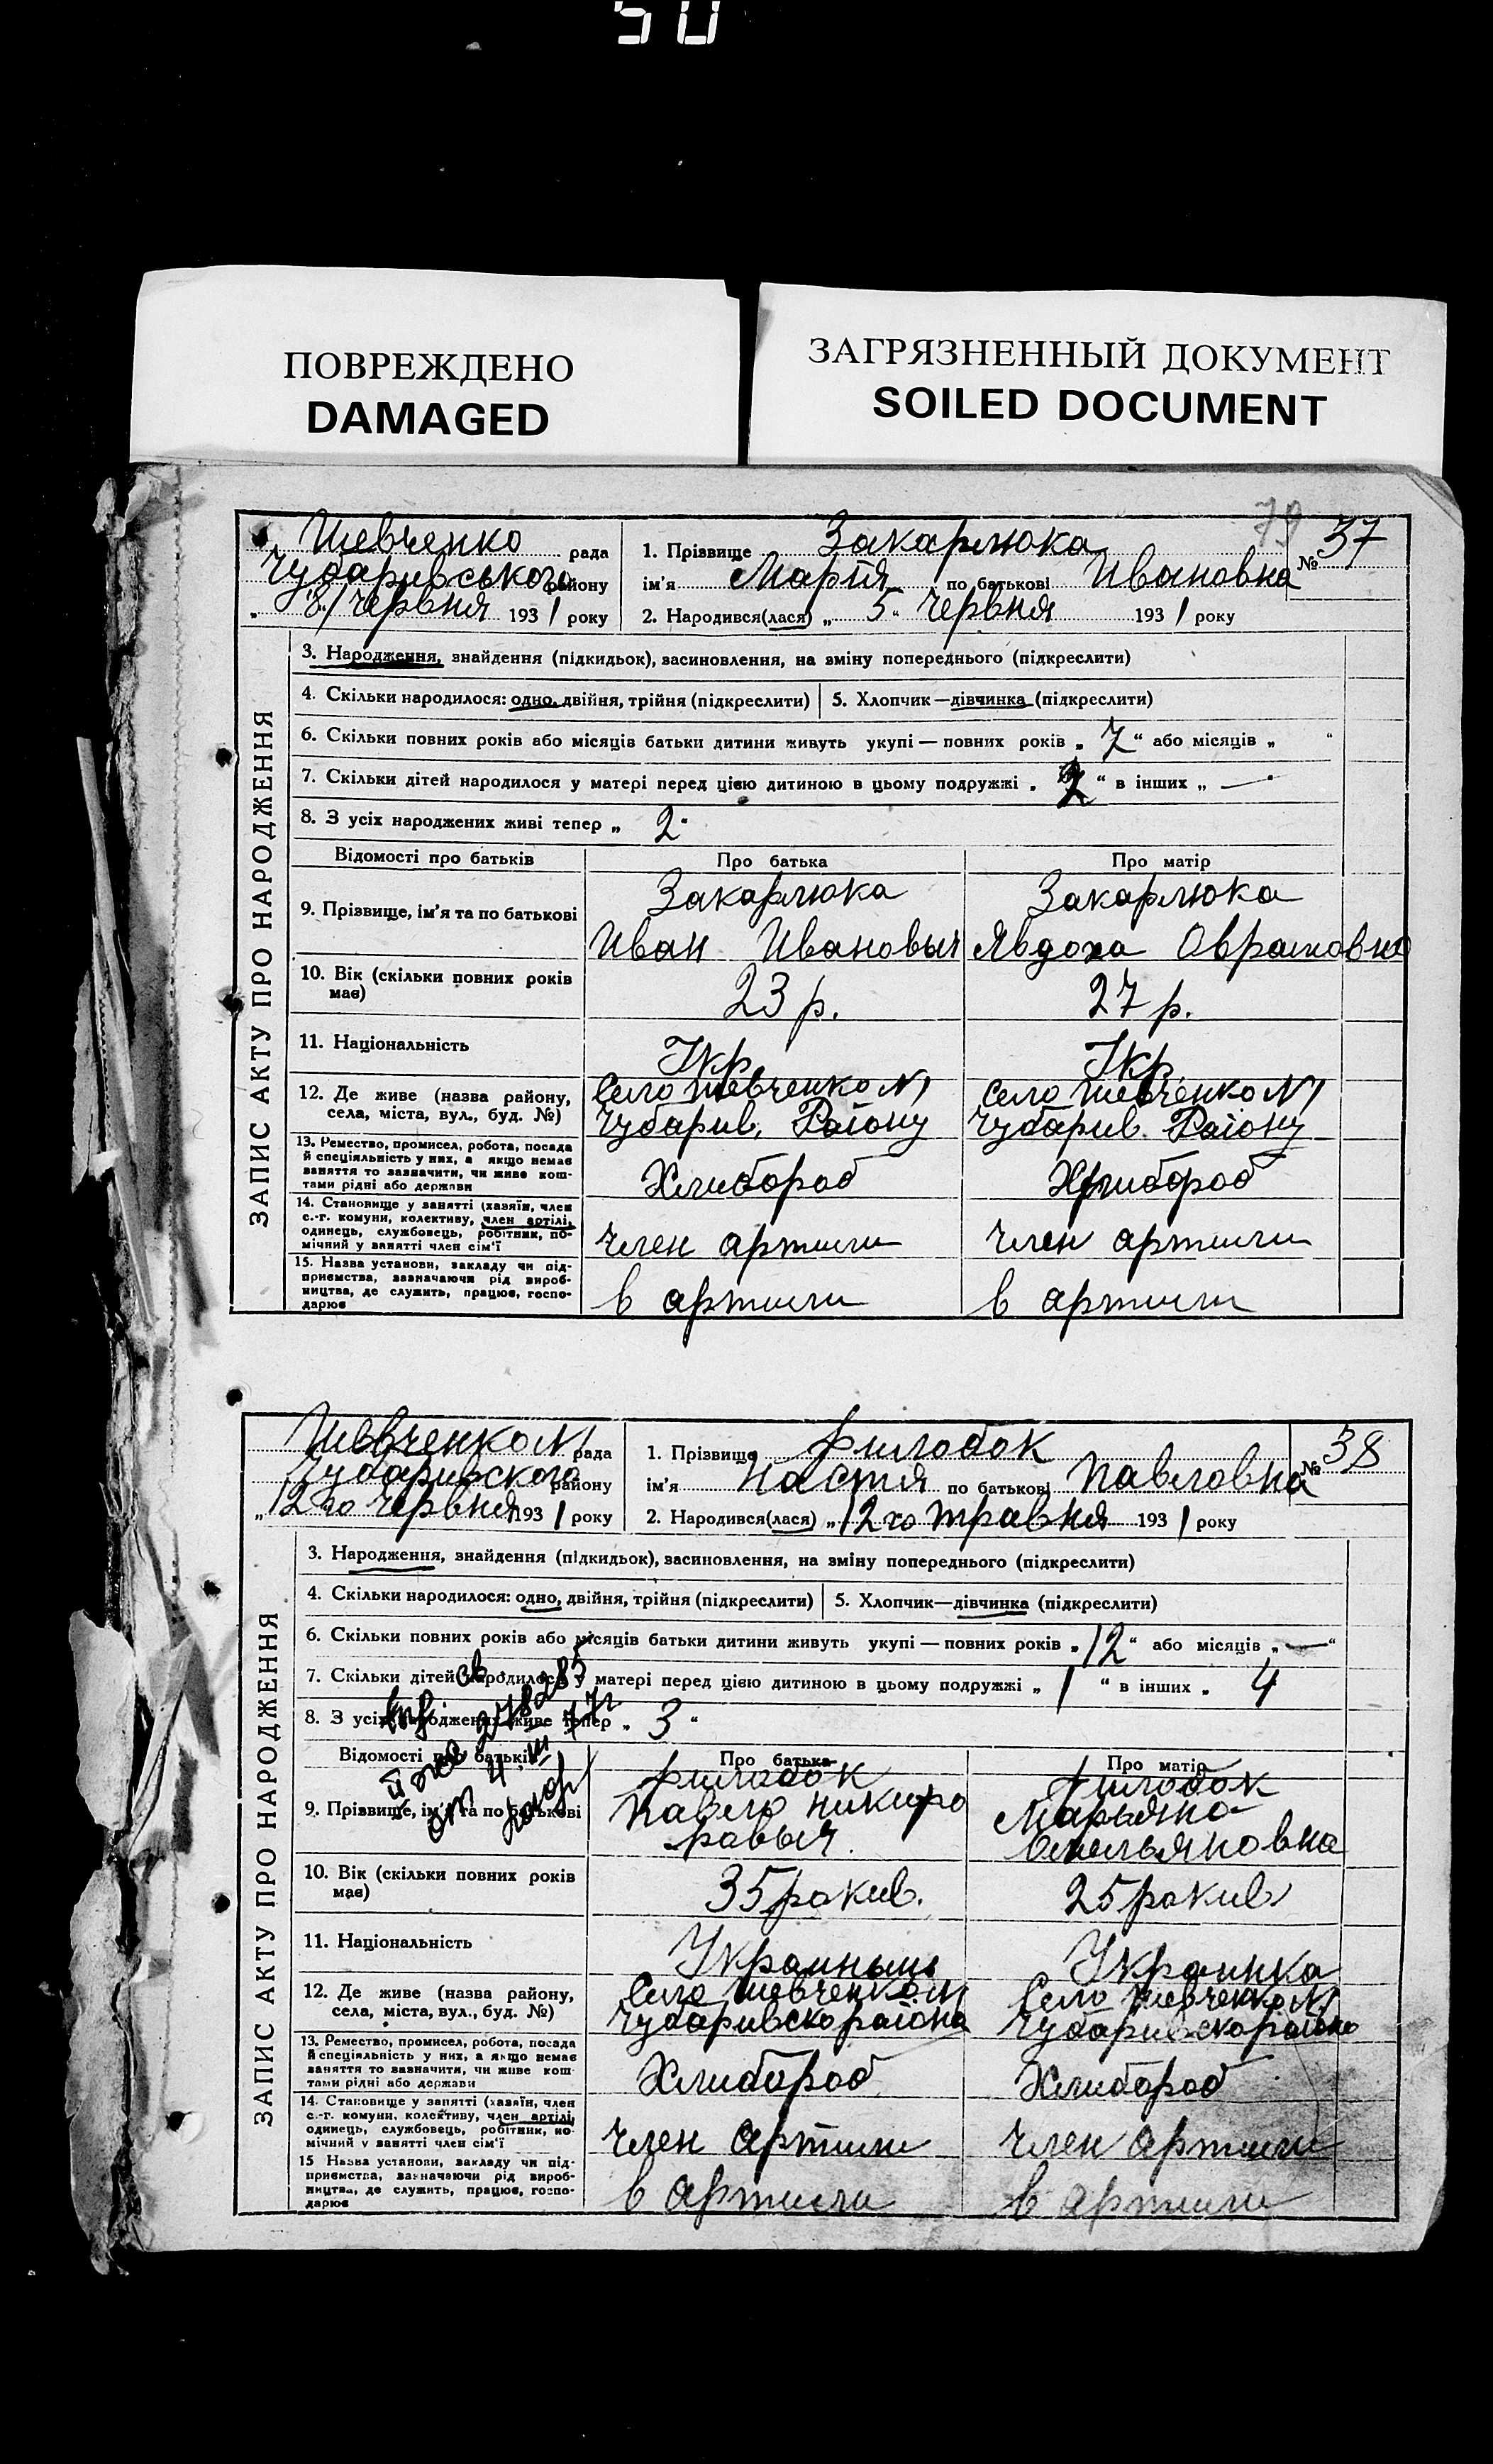 50
ПОВРЕЖДЕНО
DAMAGED
ЗАГРЯЗНЕННЫЙ ДОКУМЕНТ
SOILED DOCUMENT
79
Шевченко рада
Чубаривського району
„ 8/ Червня 1931 року
1. Прізвище Закарлюка
ім'я Марія по батькові Ивановна
№ 37
2. Народився(лася) „ 5 “ Червня 1931 року
ЗАПИС АКТУ ПРО НАРОДЖЕННЯ
3. Народження, знайдення (підкидьок), засиновлення, на зміну попереднього (підкреслити)
4. Скільки народилося: одно, двійня, трійня (підкреслити) 5. Хлопчик—дівчинка (підкреслити)
6. Скільки повних років або місяців батьки дитини живуть укупі — повних років „ 7 “ або місяців „ “
7. Скільки дітей народилося у матері перед цією дитиною в цьому подружжі „ 2 “ в інших „ — “
8. З усіх народжених живі тепер „ 2 “
Відомості про батьків Про батька Про матір
9. Прізвище, ім'я та по батькові
Закарлюка
Иван Ивановыч
Закарлюка
Явдоха Оврамовна
10. Вік (скільки повних років
має)
23 р.
27 р.
11. Національність
Укр
Укр
12. Де живе (назва району,
села, міста, вул., буд. №)
Село Шевченко N1
Чубарив. Раіону
Село Шевченко N1
Чубарив. Раіону
13. Ремество, промисел, робота, посада
й спеціяльність у них, а якщо немає
заняття то зазначити, чи живе кош-
тами рідні або держави
Хлибороб
Хлибороб
14. Становище у занятті (хазяїн, член
с.-г. комуни, колективу, член артілі,
одинець, службовець, робітник, по-
мічний у занятті член сім'ї
член артили
член артили
15. Назва установи, закладу чи під-
приємства, зазначаючи рід вироб-
ництва, де служить, працює, госпо-
дарює
в артили
в артили
Шевченко N1 рада
Чубаривского району
„ 12го Червня 1931 року
1. Прізвище Филобок
ім'я Настя по батькові Павловна
№ 38
2. Народився(лася) „ 12го травня 1931 року
ЗАПИС АКТУ ПРО НАРОДЖЕННЯ
3. Народження, знайдення (підкидьок), засиновлення, на зміну попереднього (підкреслити)
4. Скільки народилося: одно, двійня, трійня (підкреслити) 5. Хлопчик—дівчинка (підкреслити)
6. Скільки повних років або місяців батьки дитини живуть укупі — повних років „ 12 “ або місяців „ — “
7. Скільки дітей народилося у матері перед цією дитиною в цьому подружжі „ 1 “ в інших „ 4
8. З усіх народжених живе тепер „ 3 “
Відомості про батьків Про батька Про матір
9. Прізвище, ім'я та по батькові
Филобок
Павло Никифо
равыч.
Филобок
Марьяна
Омельяновна
10. Вік (скільки повних років
має)
35 рокив.
25 рокив
11. Національність
Украиныць
Украинка
12. Де живе (назва району,
села, міста, вул., буд. №)
Село Шевченко N1
Чубаривско раіона
Село Шевченко N1
Чубаривско раіона
13. Ремество, промисел, робота, посада
й спеціяльність у них, а якщо немає
заняття то зазначити, чи живе кош-
тами рідні або держави
Хлибороб
Хлибороб
14. Становище у занятті (хазяїн, член
с.-г. комуни, колективу, член артілі,
одинець, службовець, робітник, по-
мічний у занятті член сім'ї
член артили
член артили
15 Назва установи, закладу чи під-
приємства, зазначаючи рід вироб-
ництва, де служить, працює, госпо-
дарює
в артили
в артили